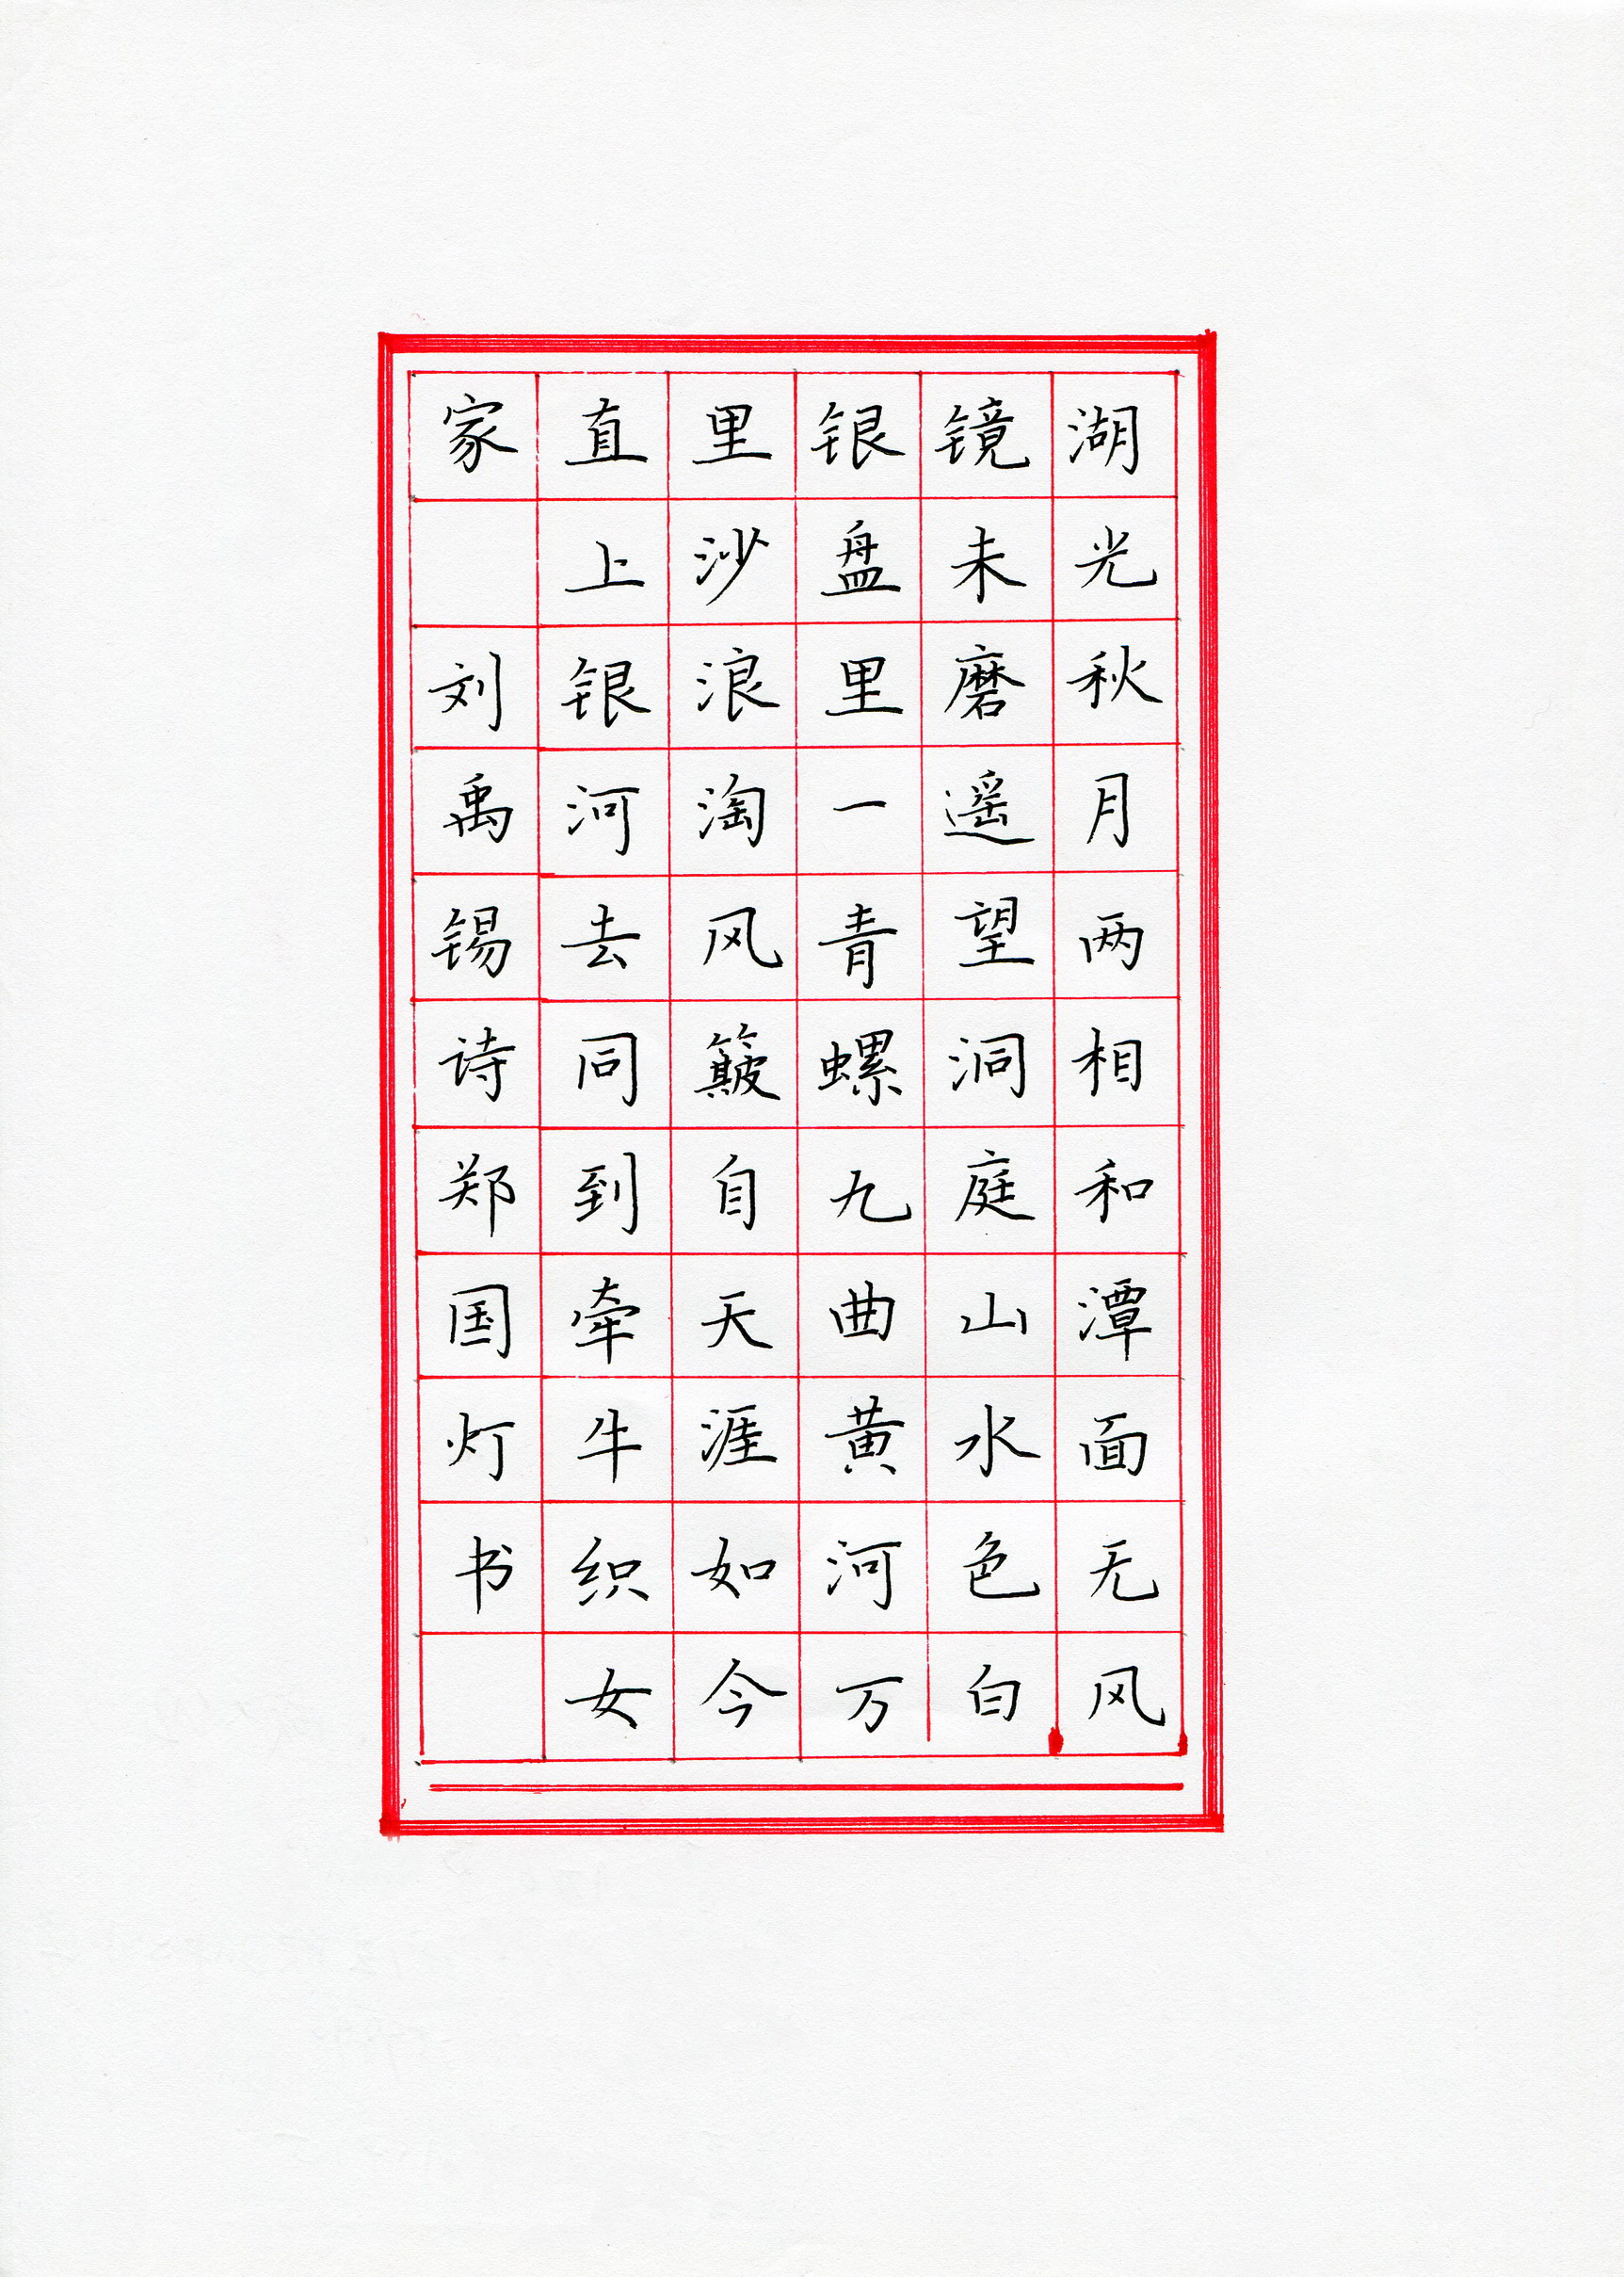 湖光秋月两相和潭面无风
镜未磨遥望洞庭山水色白
银盘里一青螺九曲黄河万
里沙浪淘风簸自天涯如今
直上银河去同到牵牛织女
家 刘禹锡诗郑国灯书